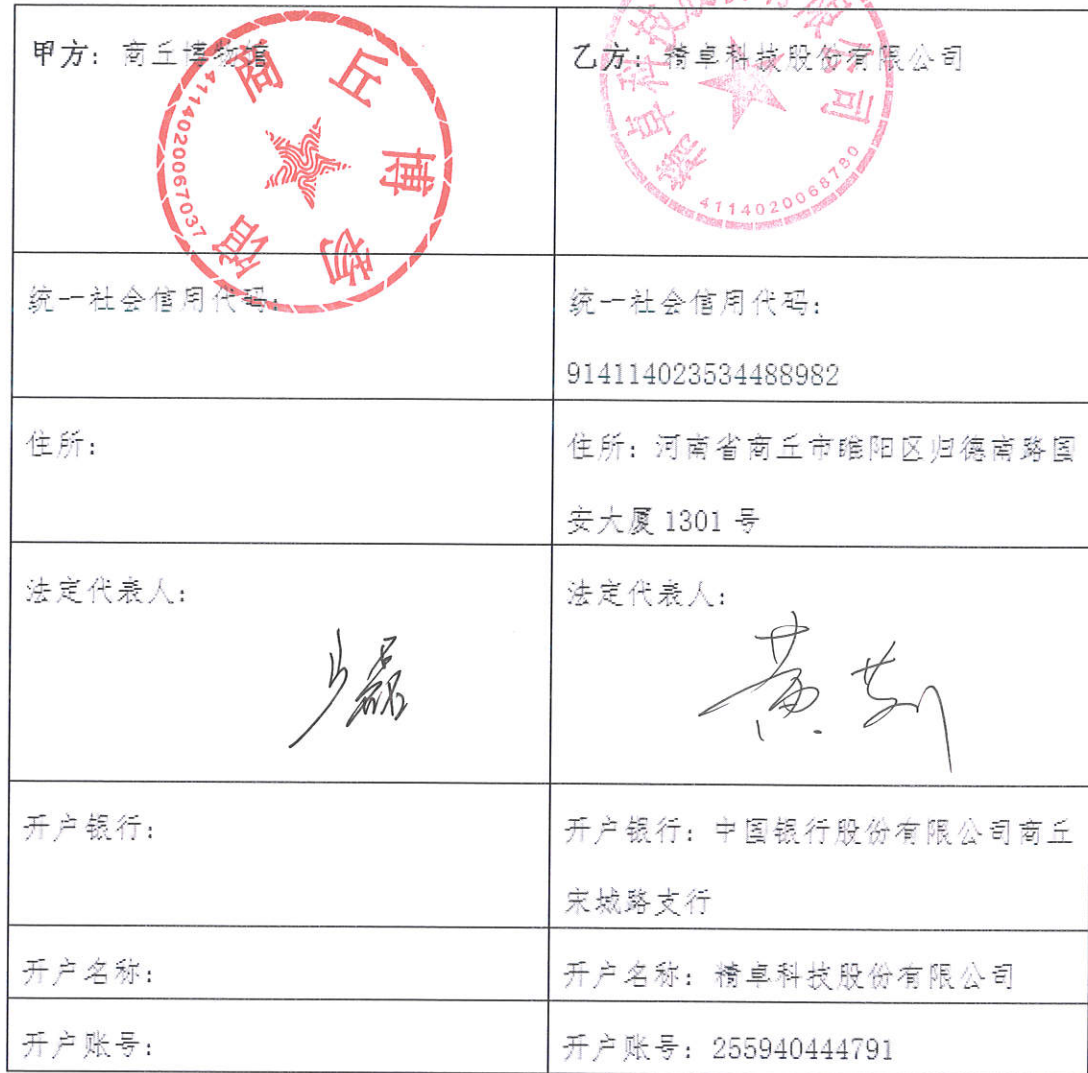 甲方：商丘博物馆
乙方：精卓科技股份有限公司
商丘博物馆
4114020067037
精卓科技股份有限公司
4114020068780
统一社会信用代码：
统一社会信用代码：
914114023534488982
住所：
住所：河南省商丘市睢阳区归德南路国
安大厦 1301 号
法定代表人：
法定代表人：
开户银行：
开户银行：中国银行股份有限公司商丘
宋城路支行
开户名称：
开户名称：精卓科技股份有限公司
开户账号：
开户账号：255940444791